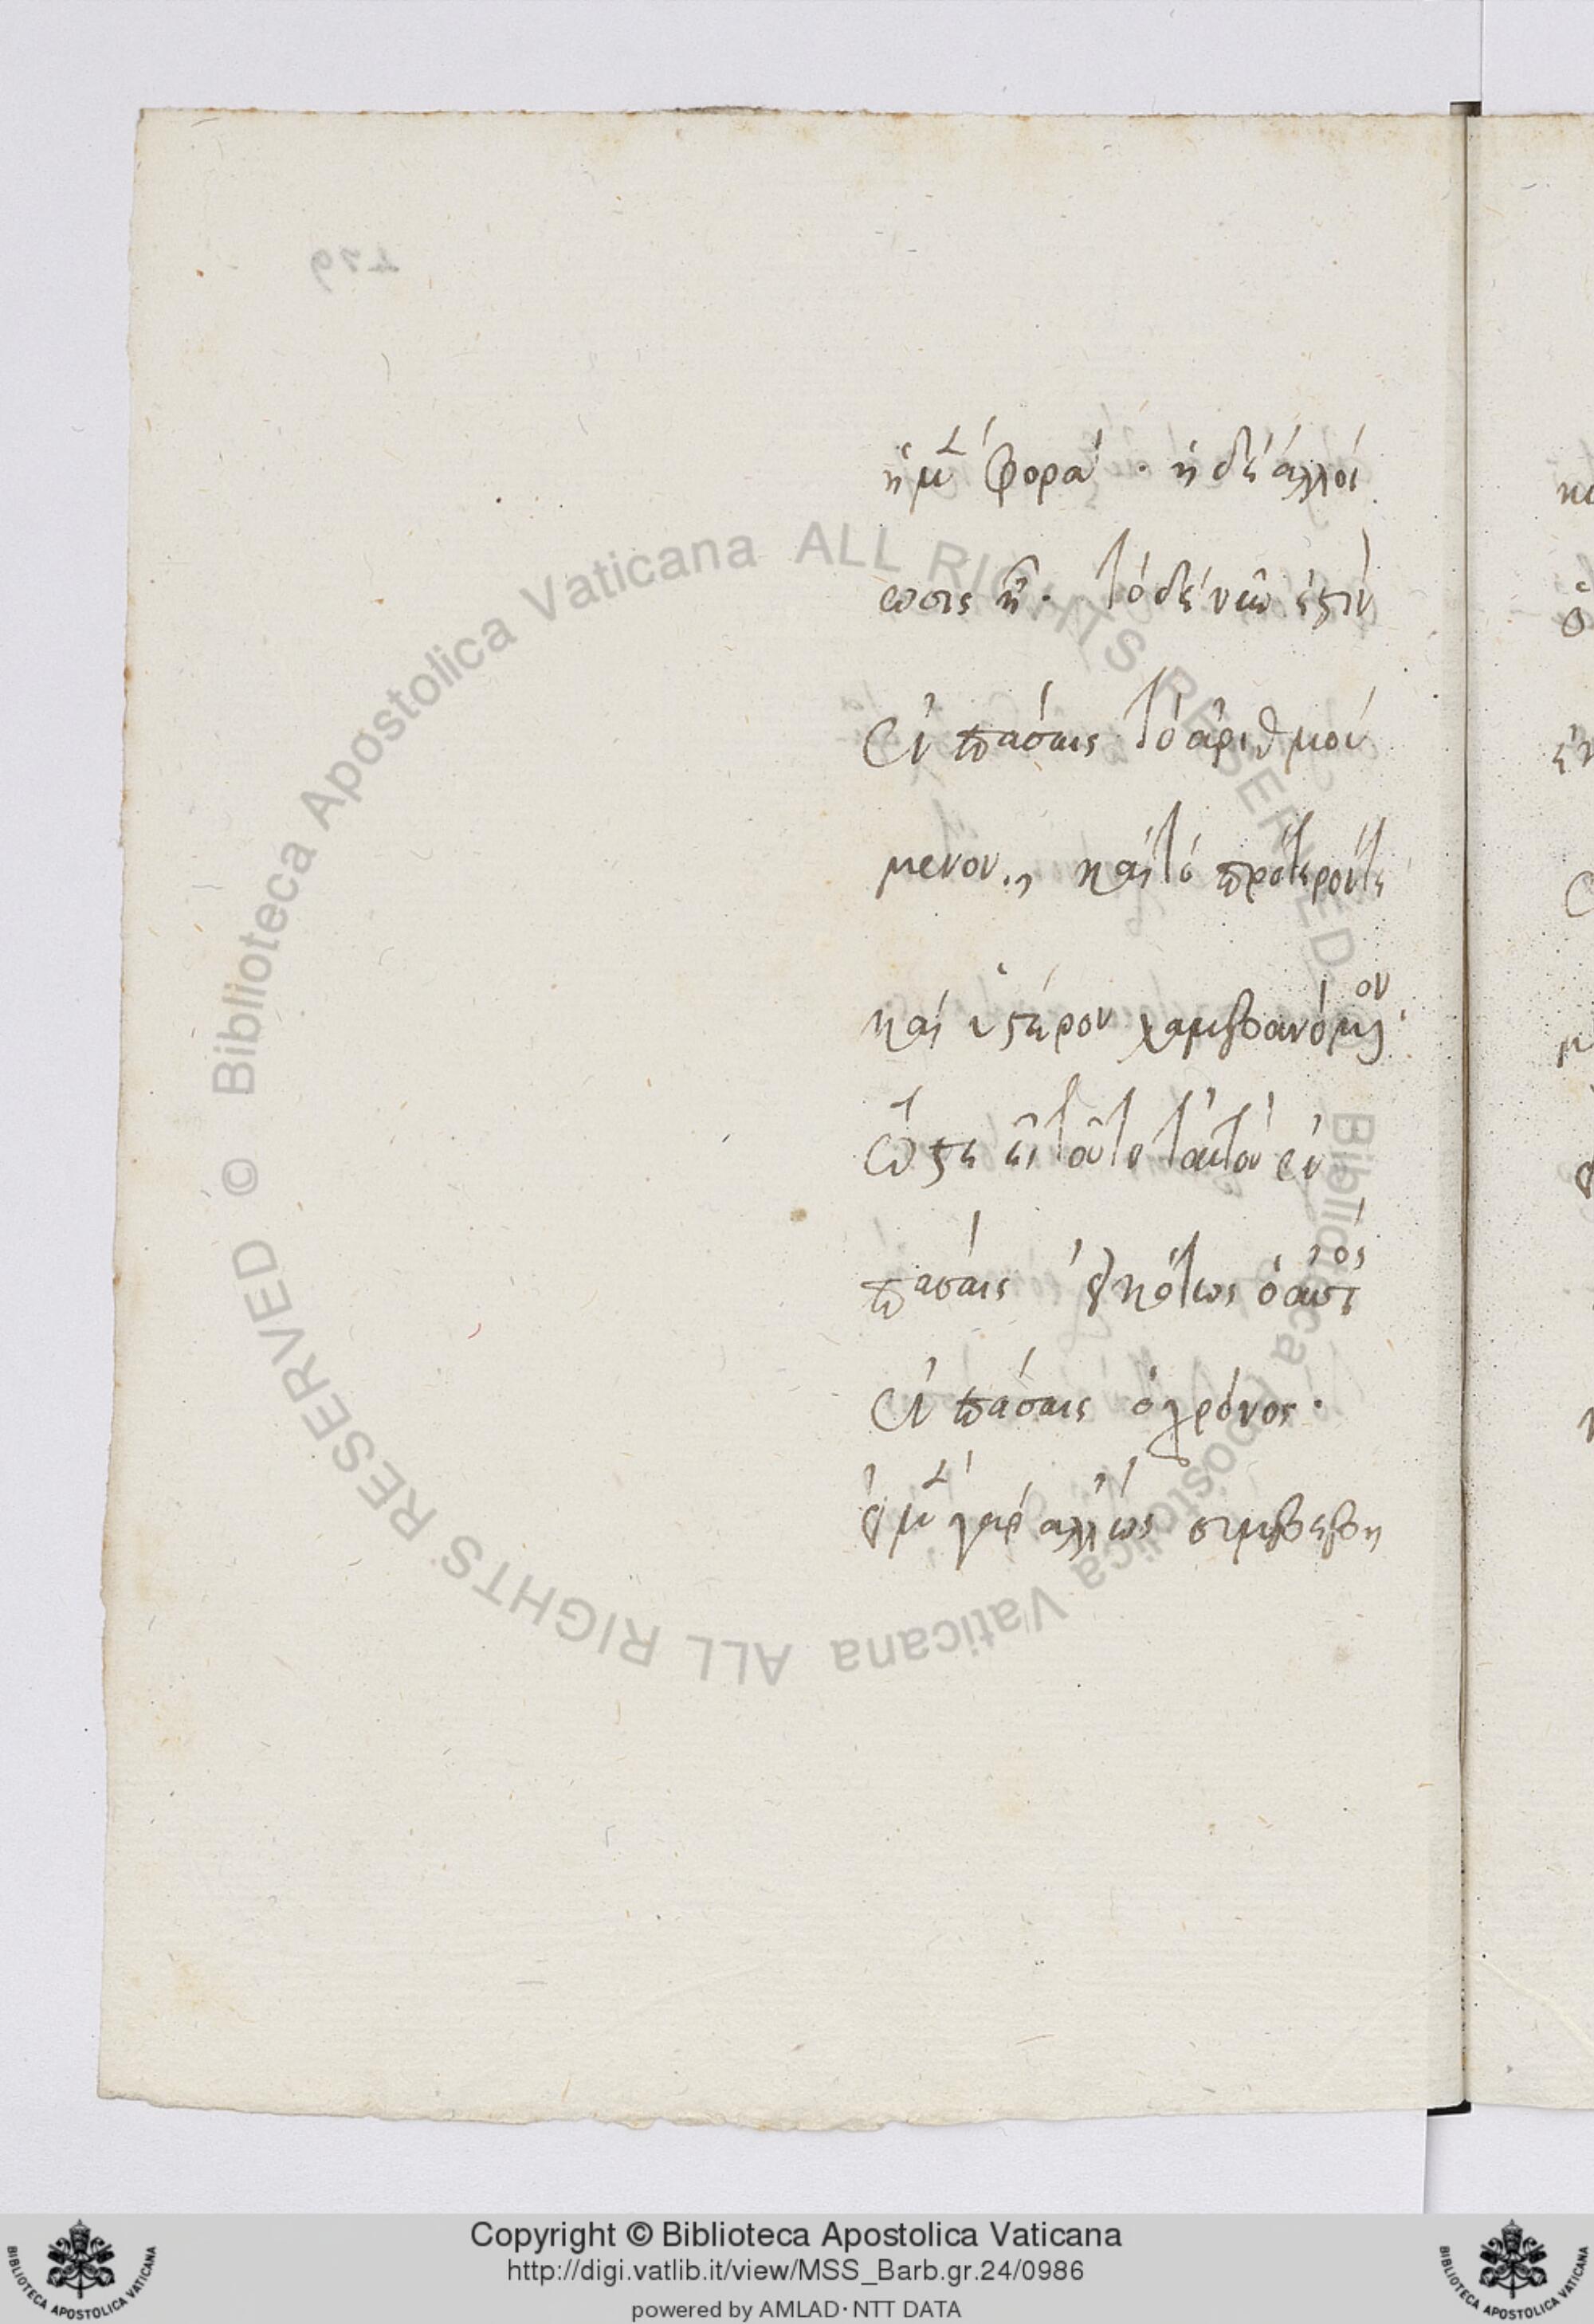 ἡ μὲν φορὰ · ἡ δὲ ἀλλοί
ωσις ἦν · τὸ δὲ νῦν ἐστὶν
ἐν πάσαις τὸ ἀριθμού
μενον ., καὶ τὸ πρότερόν τε
καὶ ὕστερον λαμβανόμενον ·
ὥστε εἰ τοῦτο ταυτὸν ἐν
πάσαις εἰκότως ὁ αὐτός
ἐν πάσαις ὁ χρόνος ·
εἰ μὲν γὰρ ἄλλως συμβεβη
479
© Biblioteca Apostolica Vaticana ALL RIGHTS RESERVED
© Biblioteca Apostolica Vaticana ALL RIGHTS RESERVED
Copyright © Biblioteca Apostolica Vaticana
http://digi.vatlib.it/view/MSS_Barb.gr.24/0986
powered by AMLAD·NTT DATA
BIBLIOTECA APOSTOLICA VATICANA
BIBLIOTECA APOSTOLICA VATICANA